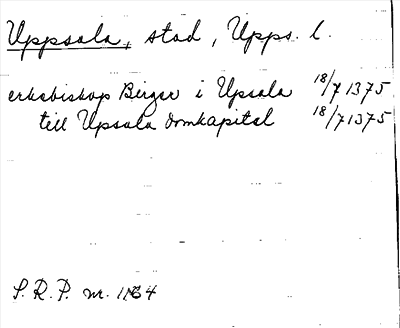 Uppsala, stad, Upps. l.
erkebiskop Birger i Upsala 18/7 1375
till Upsala domkapitel 18/7 1375
S. R. P. nr.